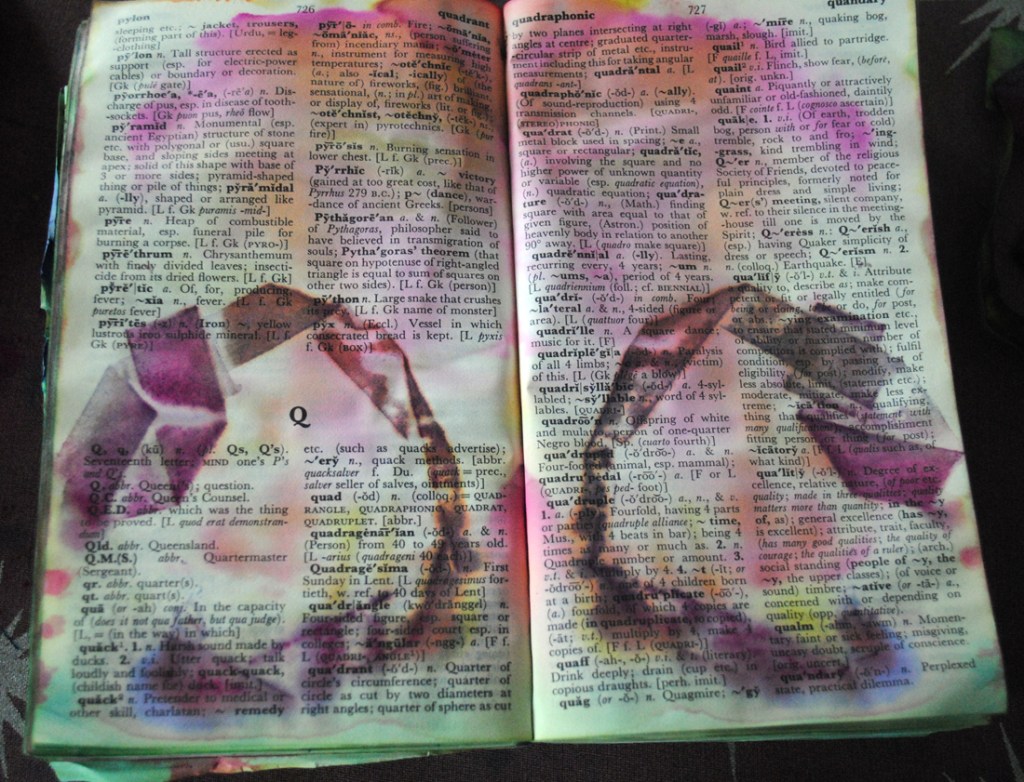 pylon
726
quadrant
sleeping etc.; ~ jacket, trousers,
(forming part of this). [Urdu, = leg-
-clothing]
pȳ'lon n. Tall structure erected as
support (esp. for electric-power
cables) or boundary or decoration.
[Gk (pulē gate)]
n. Dis-
charge of pus, esp. in disease of tooth-
-sockets. [Gk puon pus, rheō flow]
pȳ'ramid n. Monumental (esp.
ancient Egyptian) structure of stone
etc. with polygonal or (usu.) square
base, and sloping sides meeting at
apex; solid of this shape with base of
3 or more sides; pyramid-shaped
thing or pile of things; pȳră'midal
a. (-lly), shaped or arranged like
pyramid. [L f. Gk puramis -mid-]
pȳre n. Heap of combustible
material, esp. funeral pile for
burning a corpse. [L f. Gk (PYRO-)]
pȳrē'thrum n. Chrysanthemum
with finely divided leaves; insecti-
cide from its dried flowers. [L f. Gk]
pȳrĕ'tic a. Of, for, producing,
fever; ~xia n., fever. [L f. Gk
puretos fever]
pȳrī'tēs n. (Iron) ~, yellow
lustrous iron sulphide mineral. [L f.
Gk (PYRE)]
in comb. Fire;
n., (person suffering
from) incendiary mania;
n., instrument for measuring high
temperatures; ~otĕ'chnic
(a.; also -ical, -ically) (of the
nature of) fireworks, (fig.) brilliant,
sensational, (n. in pl.) art of making,
or display of, fireworks (lit. or fig.);
~otĕ'chnist, ~otĕchnȳ, ns.,
(expert in) pyrotechnics. [Gk (pur
fire)]
pȳrō'sis n. Burning sensation in
lower chest. [L f. Gk (prec.)]
Pȳ'rrhic (-rĭk) a. ~ victory
(gained at too great cost, like that of
Pyrrhus 279 B.C.); p~ (dance), war-
-dance of ancient Greeks. [persons]
Pȳthăgorē'an a. & n. (Follower)
of Pythagoras, philosopher said to
have believed in transmigration of
souls; Pytha'goras' theorem (that
square on hypotenuse of right-angled
triangle is equal to sum of squares on
other two sides). [L f. Gk (person)]
pȳ'thon n. Large snake that crushes
its prey. [L f. Gk name of monster]
pȳx n. (Eccl.) Vessel in which
consecrated bread is kept. [L pyxis
f. Gk (BOX)]
Q
Q, q, (kū) n. (pl. Qs, Q's).
Seventeenth letter; MIND one's P's
and Q's.
Q. abbr. Queen('s); question.
Q.C. abbr. Queen's Counsel.
Q.E.D. abbr. which was the thing
to be proved. [L quod erat demonstran-
dum]
Qld. abbr. Queensland.
Q.M.(S.) abbr. Quartermaster
(Sergeant).
qr. abbr. quarter(s).
qt. abbr. quart(s).
quā (or -ah) conj. In the capacity
of (does it not qua father, but qua judge).
[L, = (in the way) in which]
quăck¹. 1. n. Harsh sound made by
ducks. 2. v.i. Utter quack; talk
loudly and foolishly; quack-quack,
(childish name for) duck. [imit.]
quăck² n. Pretender to medical or
other skill, charlatan; ~ remedy
etc. (such as quacks advertise);
~'erȳ n., quack methods. [abbr.
quacksalver f. Du. (quack = prec.,
salver seller of salves, ointments)]
quad (-ŏd) n. (colloq.) = QUAD-
RANGLE, QUADRAPHONIC, QUADRAT,
QUADRUPLET. [abbr.]
quadragenār'ian (-ŏd-) a. & n.
(Person) from 40 to 49 years old.
[L -arius (quadrageni 40 each)]
Quadragĕ'sima (-ŏd-) n. First
Sunday in Lent. [L quadragesimus for-
tieth, w. ref. to 40 days of Lent]
qua'drăngle (kwŏ'drănggel) n.
Four-sided figure, esp. square or
rectangle; four-sided court esp. in
colleges; ~ă'ngular (-ngg-) a. [F f.
L (QUADRI-, ANGLE)]
qua'drant (-ŏ'd-) n. Quarter of
circle's circumference; quarter of
circle as cut by two diameters at
right angles; quarter of sphere as cut
quadraphonic
727
quandary
by two planes intersecting at right
angles at centre; graduated quarter-
-circular strip of metal etc., instru-
ment including this for taking angular
measurements; quadră'ntal a. [L
quadrans -ant-]
quadraphŏ'nic (-ŏd-) a. (~ally).
(Of sound-reproduction) using 4
transmission channels. [QUADRI-,
(STEREO)PHONIC]
qua'drat (-ŏ'd-) n. (Print.) Small
metal block used in spacing; ~e a.,
square or rectangular; quadră'tic,
(a.) involving the square and no
higher power of unknown quantity
or variable (esp. quadratic equation),
(n.) quadratic equation; qua'dra-
ture (-ŏ'd-) n., (Math.) finding
square with area equal to that of
given figure, (Astron.) position of
heavenly body in relation to another
90° away. [L (quadro make square)]
quadrĕ'nnial a. (-lly). Lasting,
recurring every, 4 years; ~um n.
(pl. ~ums, ~a), period of 4 years.
[L quadriennium (foll.; cf. BIENNIAL)]
qua'dri- (-ŏ'd-) in comb. Four;
~la'teral a. & n., 4-sided (figure or
area). [L (quattuor four)]
quadri'lle n. A square dance;
music for it. [F]
quadriplē'gia n. Paralysis
of all 4 limbs; a. & n. (victim)
of this. [L (Gk plēgē a blow)]
quadrisȳllă'bic (-ŏd-) a. 4-syl-
labled; ~sȳ'llable n., word of 4 syl-
lables. [QUADRI-]
quadrōō'n n. Offspring of white
and mulatto, person of one-quarter
Negro blood. [Sp. (cuarto fourth)]
qua'druped (-ŏ'drŏŏ-) n.
Four-footed animal, esp. mammal;
quadrupedal (-rŏŏ'-) a. [F or L
(QUADRI-, pes ped- foot)]
qua'druple (-ŏ'drŏŏ-) a., n., & v.
1. a. Fourfold, having 4 parts
or parties (quadruple alliance; ~ time,
Mus., with 4 beats in bar); being 4
times as many or much as. 2. n.
Quadruple number or amount. 3.
v.t. & i. Multiply by 4. 4. ~t (-lĭt; or
-ŏdrŏŏ'-) n., one of 4 children born
at a birth; quadru'plicate (-ŏŏ'-),
(a.) fourfold, of which 4 copies are
made (in quadruplicate, so copied),
(-āt; v.t.) multiply by 4, make 4
copies of. [F f. L (QUADRI-)]
quaff (-ah-, -ŏ-) v.t. & i. (literary)
Drink deeply; drain (cup etc.) in
copious draughts. [perh. imit.]
quăg (or -ŏ-) n. Quagmire; ~'gȳ
(-gĭ) a.; ~'mīre n., quaking bog,
marsh, slough. [imit.]
quail¹ n. Bird allied to partridge.
[F quaille f. L, imit.]
quail² v.i. Flinch, show fear, (before,
at). [orig. unkn.]
quaint a. Piquantly or attractively
unfamiliar or old-fashioned, daintily
odd. [F cointe f. L (cognosco ascertain)]
quāk|e. 1. v.i. (Of earth, trodden
bog, person with or for fear or cold)
tremble, rock to and fro; ~'ing-
-grass, kind trembling in wind;
Q~'er n., member of the religious
Society of Friends, devoted to peace-
ful principles, formerly noted for
plain dress and simple living;
Q~er(s') meeting, silent company,
w. ref. to their silence in the meeting-
-house till one is moved by the
Spirit; Q~'erĕss n.; Q~'erĭsh a.,
(esp.) having Quaker simplicity of
dress or speech; Q~'erism n. 2.
n. (colloq.) Earthquake. [E]
qua'lifȳ (-ŏ'l-) v.t. & i. Attribute
quality to, describe as; make com-
petent or legally entitled (for
or to be or do, for post,
or abs.); ~ying examination etc.,
to ensure that stated minimum level
of ability is complied with; fulfil
condition, esp. by passing test of
eligibility, (for post); modify, make
less absolute, limit, (statement etc.);
moderate, mitigate, make less ex-
treme; ~ĭcā'tion n., qualifying,
(agreed with statement with
many qualifications); accomplishment
fitting person or thing (for post);
~'icātorȳ a. [F f. L (qualis such as, of
what kind)]
qua'lit|ȳ (-ŏ'l-) n. Degree of ex-
cellence, relative nature, (of poor etc.
quality; made in three qualities; quality
matters more than quantity; in the quality
of, as); general excellence (has ~y,
is excellent); attribute, trait, faculty,
(has many good qualities; the quality of
courage; the qualities of a ruler); (arch.)
social standing (people of ~y, the
~y, the upper classes); (of voice or
sound) timbre; ~ative (or -tā-) a.,
concerned with or depending on
quality (opp. quantitative).
qualm (-ahm, -awm) n. Momen-
tary faint or sick feeling; misgiving,
uneasy doubt, scruple of conscience
[orig. uncert.]
qua'ndarȳ (-ŏ'n-) n. Perplexed
state, practical dilemma.